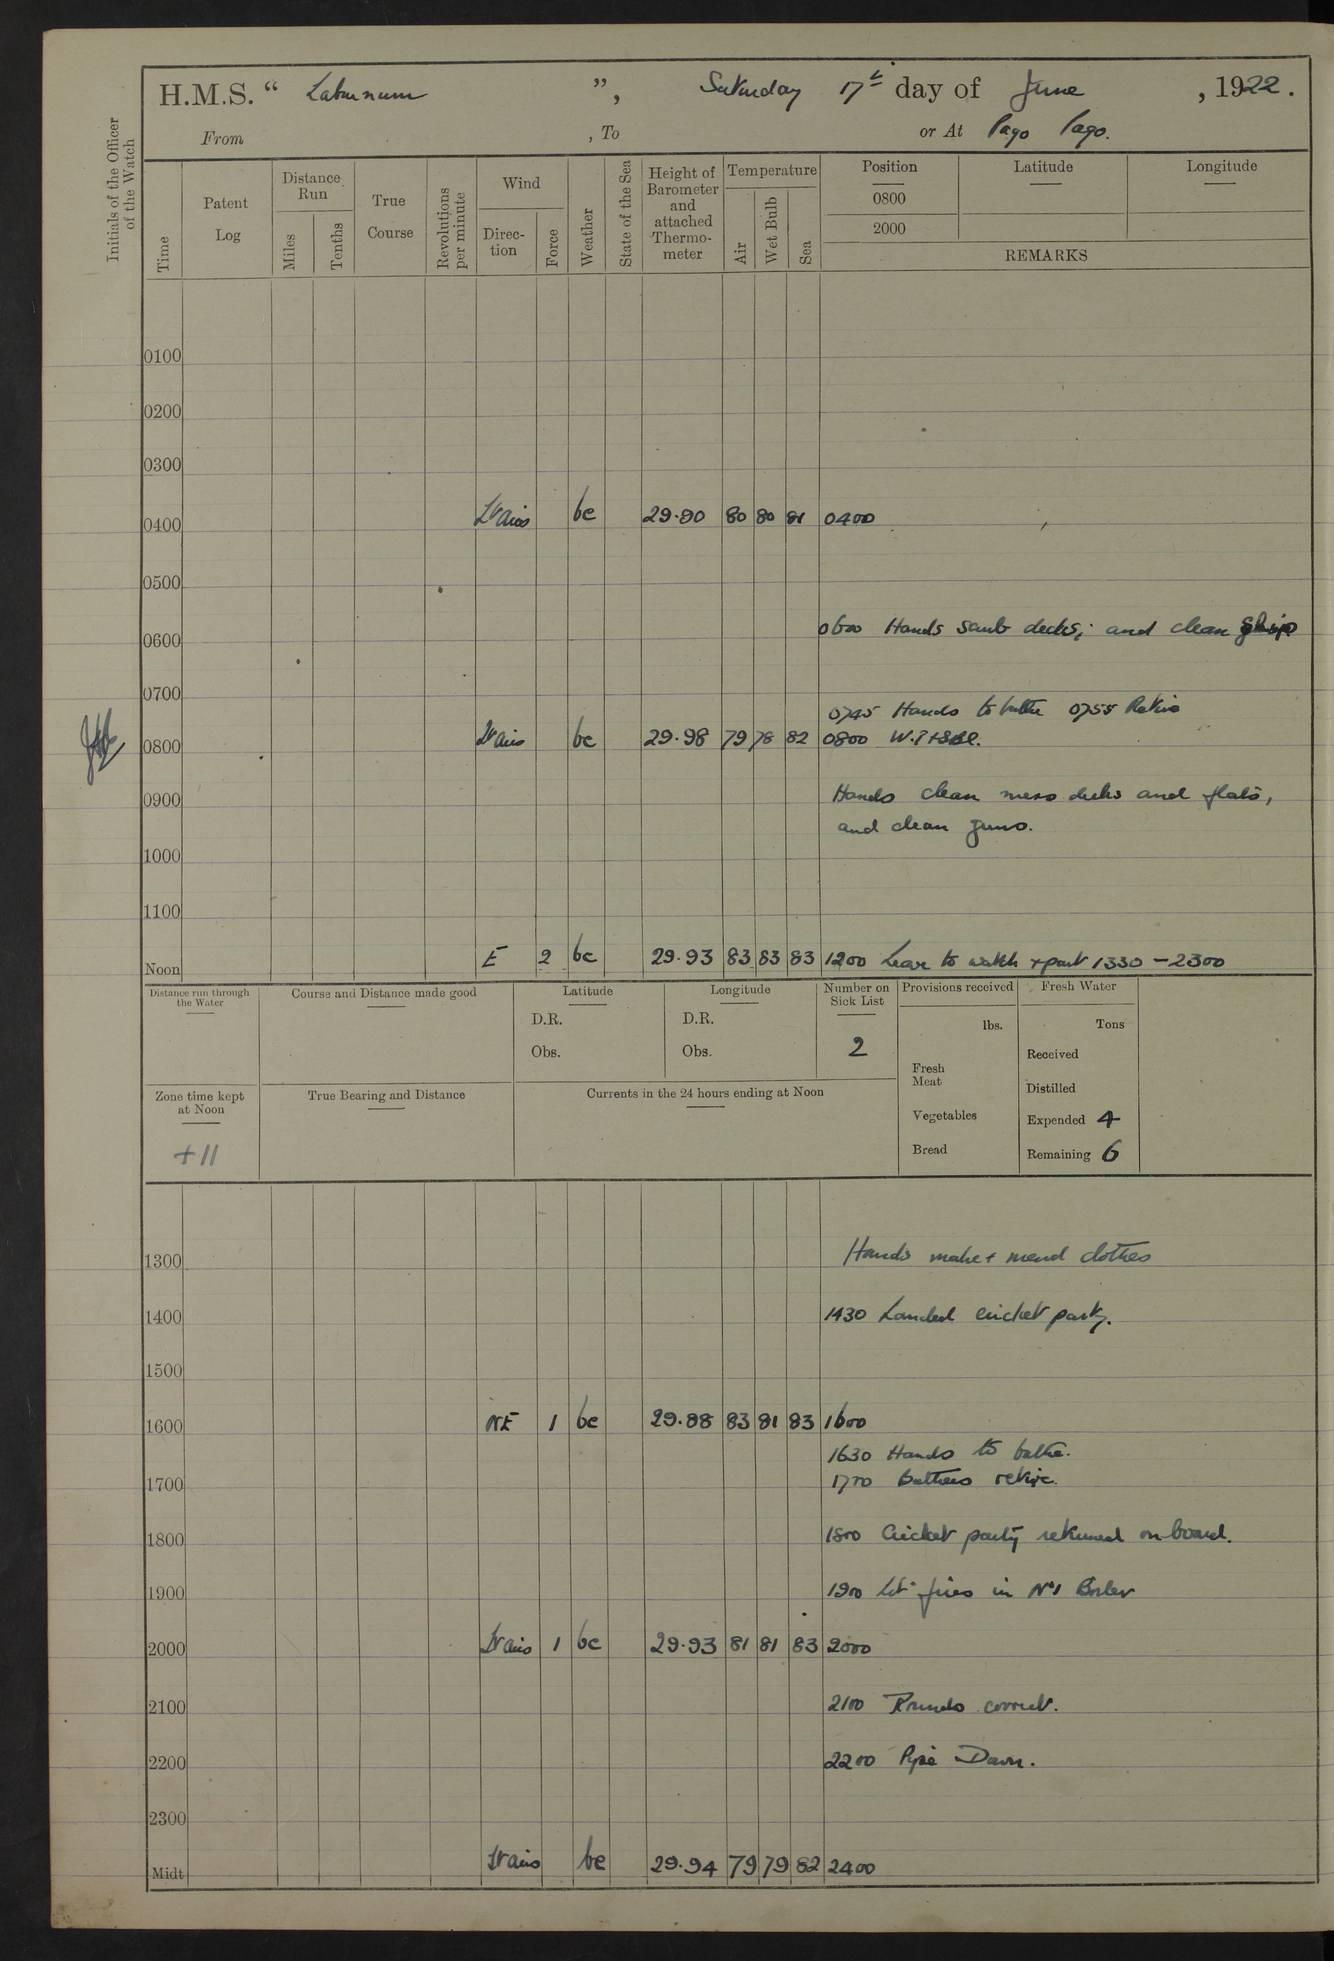 H.M.S. “ Laburnum ”, Saturday 17th day of June, 1922.
From , To or At Pago Pago.
Initials of the Officer of the Watch
Time
Patent Log
Distance Run
Miles
Tenths
True Course
Revolutions per minute
Wind
Direc-tion
Force
Weather
State of the Sea
Height of Barometer and attached Thermo-meter
Temperature
Air
Wet Bulb
Sea
Position
0800
2000
Latitude
Longitude
REMARKS
0100
0200
0300
0400 Lt airs bc 29.90 80 80 81 0400
0500
0600 0600 Hands scrub decks; and clean ship
0700
0745 Hands to bathe 0755 Retire
0800 Lt airs bc 29.98 79 78 82 0800
0900 Hands clean mess decks and flats,
and clean guns.
1000
1100
Noon E 2 bc 29.93 83 83 83 1200 Leave to watch + part 1330 – 2300
Distance run through the Water
Course and Distance made good
Latitude
D.R.
Obs.
Longitude
D.R.
Obs.
Number on Sick List
2
Provisions received
lbs.
Fresh Meat
Vegetables
Bread
Fresh Water
Tons
Received
Distilled
Expended 4
Remaining 6
Zone time kept at Noon
+11
True Bearing and Distance
Currents in the 24 hours ending at Noon
1300 Hands make + mend clothes
1400 1430 Landed cricket party.
1500
1600 NE 1 bc 29.88 83 81 83 1600
1630 Hands to bathe.
1700 1700 Bathers retire.
1800 1800 Cricket party returned on board.
1900 1900 Lit fires in No 1 Boiler
2000 Lt airs 1 bc 29.93 81 81 83 2000
2100 2100 Rounds correct.
2200 2200 Pipe Down.
2300
Midt Lt airs bc 29.94 79 79 82 2400